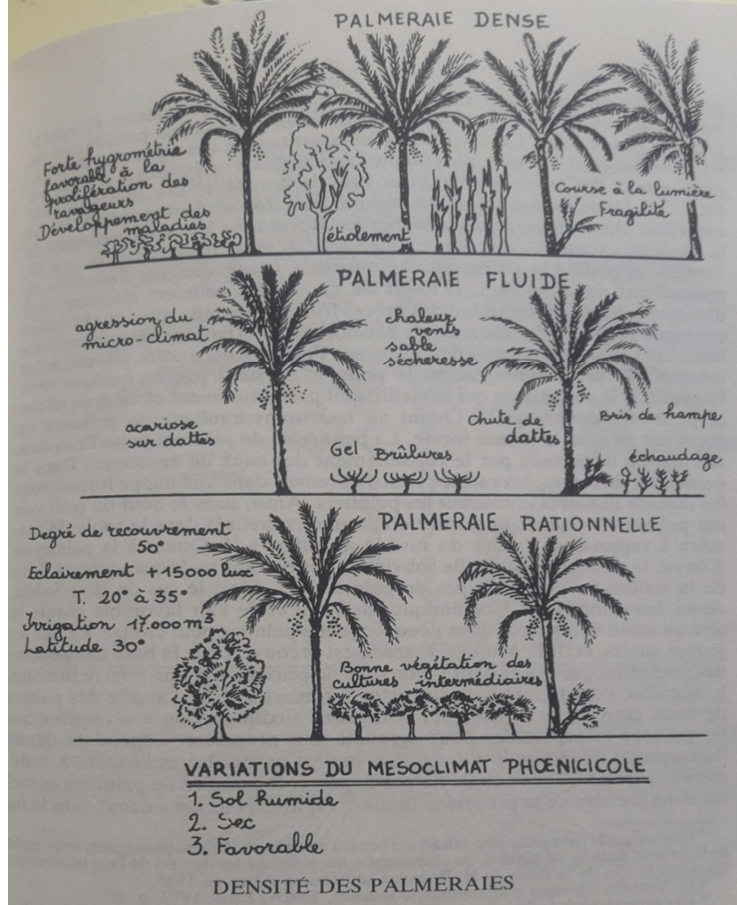 PALMERAIE DENSE
Forte hygrométrie
favorable à la
prolifération des
ravageurs
Développement des
maladies
étiolement
Course à la lumière
Fragilité
PALMERAIE FLUIDE
agression du
micro-climat
chaleur
vents
sable
sécheresse
acariose
sur dattes
Gel
Brûlures
Chute de
dattes
Bris de hampe
échaudage
PALMERAIE RATIONNELLE
Degré de recouvrement
50°
Eclairement +15000 lux
T. 20° à 35°
Irrigation 17.000 m³
Latitude 30°
Bonne végétation des
cultures intermédiaires
VARIATIONS DU MESOCLIMAT PHŒNICICOLE
1. Sol humide
2. Sec
3. Favorable
DENSITÉ DES PALMERAIES